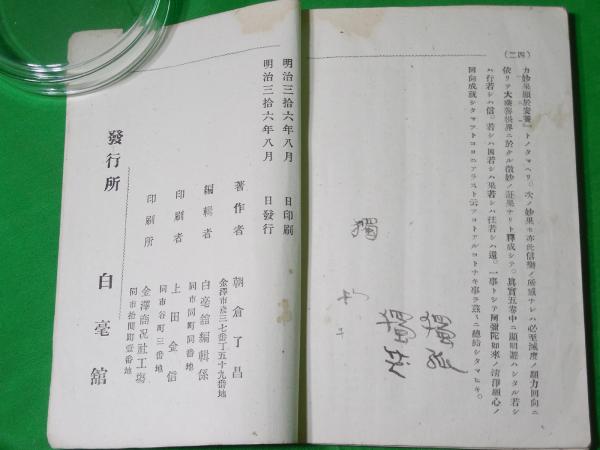 (四二)
カ妙果顯於安養」トノタマヘリ。次ノ妙果モ亦此信樂ノ所感ナレハ必至滅度ノ願力回向ニ
依リテ大乘善根界ニ於ケル微妙ノ證果ナリト釋成シテ。眞實五卷中ニ顯明シタル若シ
ハ行若シハ信。若シハ因若シハ果若シハ往若シハ還。一事トシテ阿彌陀如來ノ淸淨願心ノ
回向成就シタマフトコロニアラスト云フコトアルコトナキ事ヲ茲ニ總結シタマヒキ。
獨
明治三拾六年八月 日印刷
明治三拾六年八月 日發行
著作者 朝倉了昌
金澤市彥三七番丁五十九番地
編輯者 白毫舘編輯係
同市同町同番地
印刷者 上田金信
同市谷町三番地
印刷所 金澤商况社工塲
同市拾間町壹番地
發行所 白毫舘